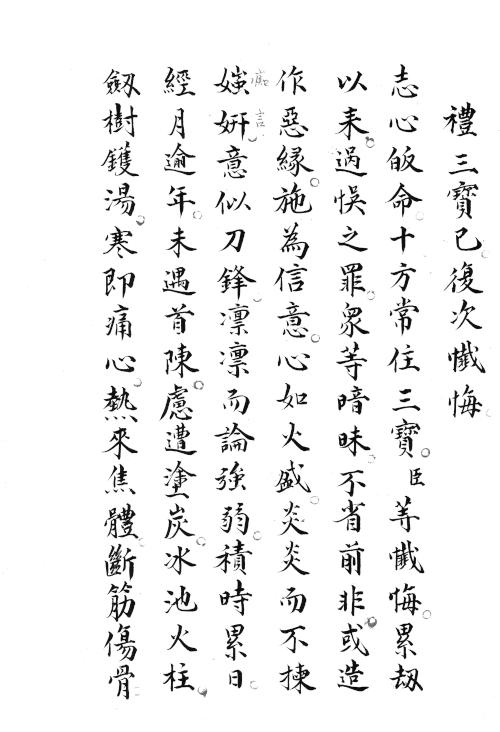 禮三寶已復次懺悔
志心皈命十方常住三寶臣等懺悔累劫
以来過悞之罪衆等暗昧不省前非或造
作惡緣施為信意心如火盛炎炎而不揀
媸妍意似刀鋒凛凛而論強弱積時累日
痴言
經月逾年未遇首陳慮遭塗炭冰池火柱
劔樹鑊湯寒即痛心熱來焦體斷筋傷骨